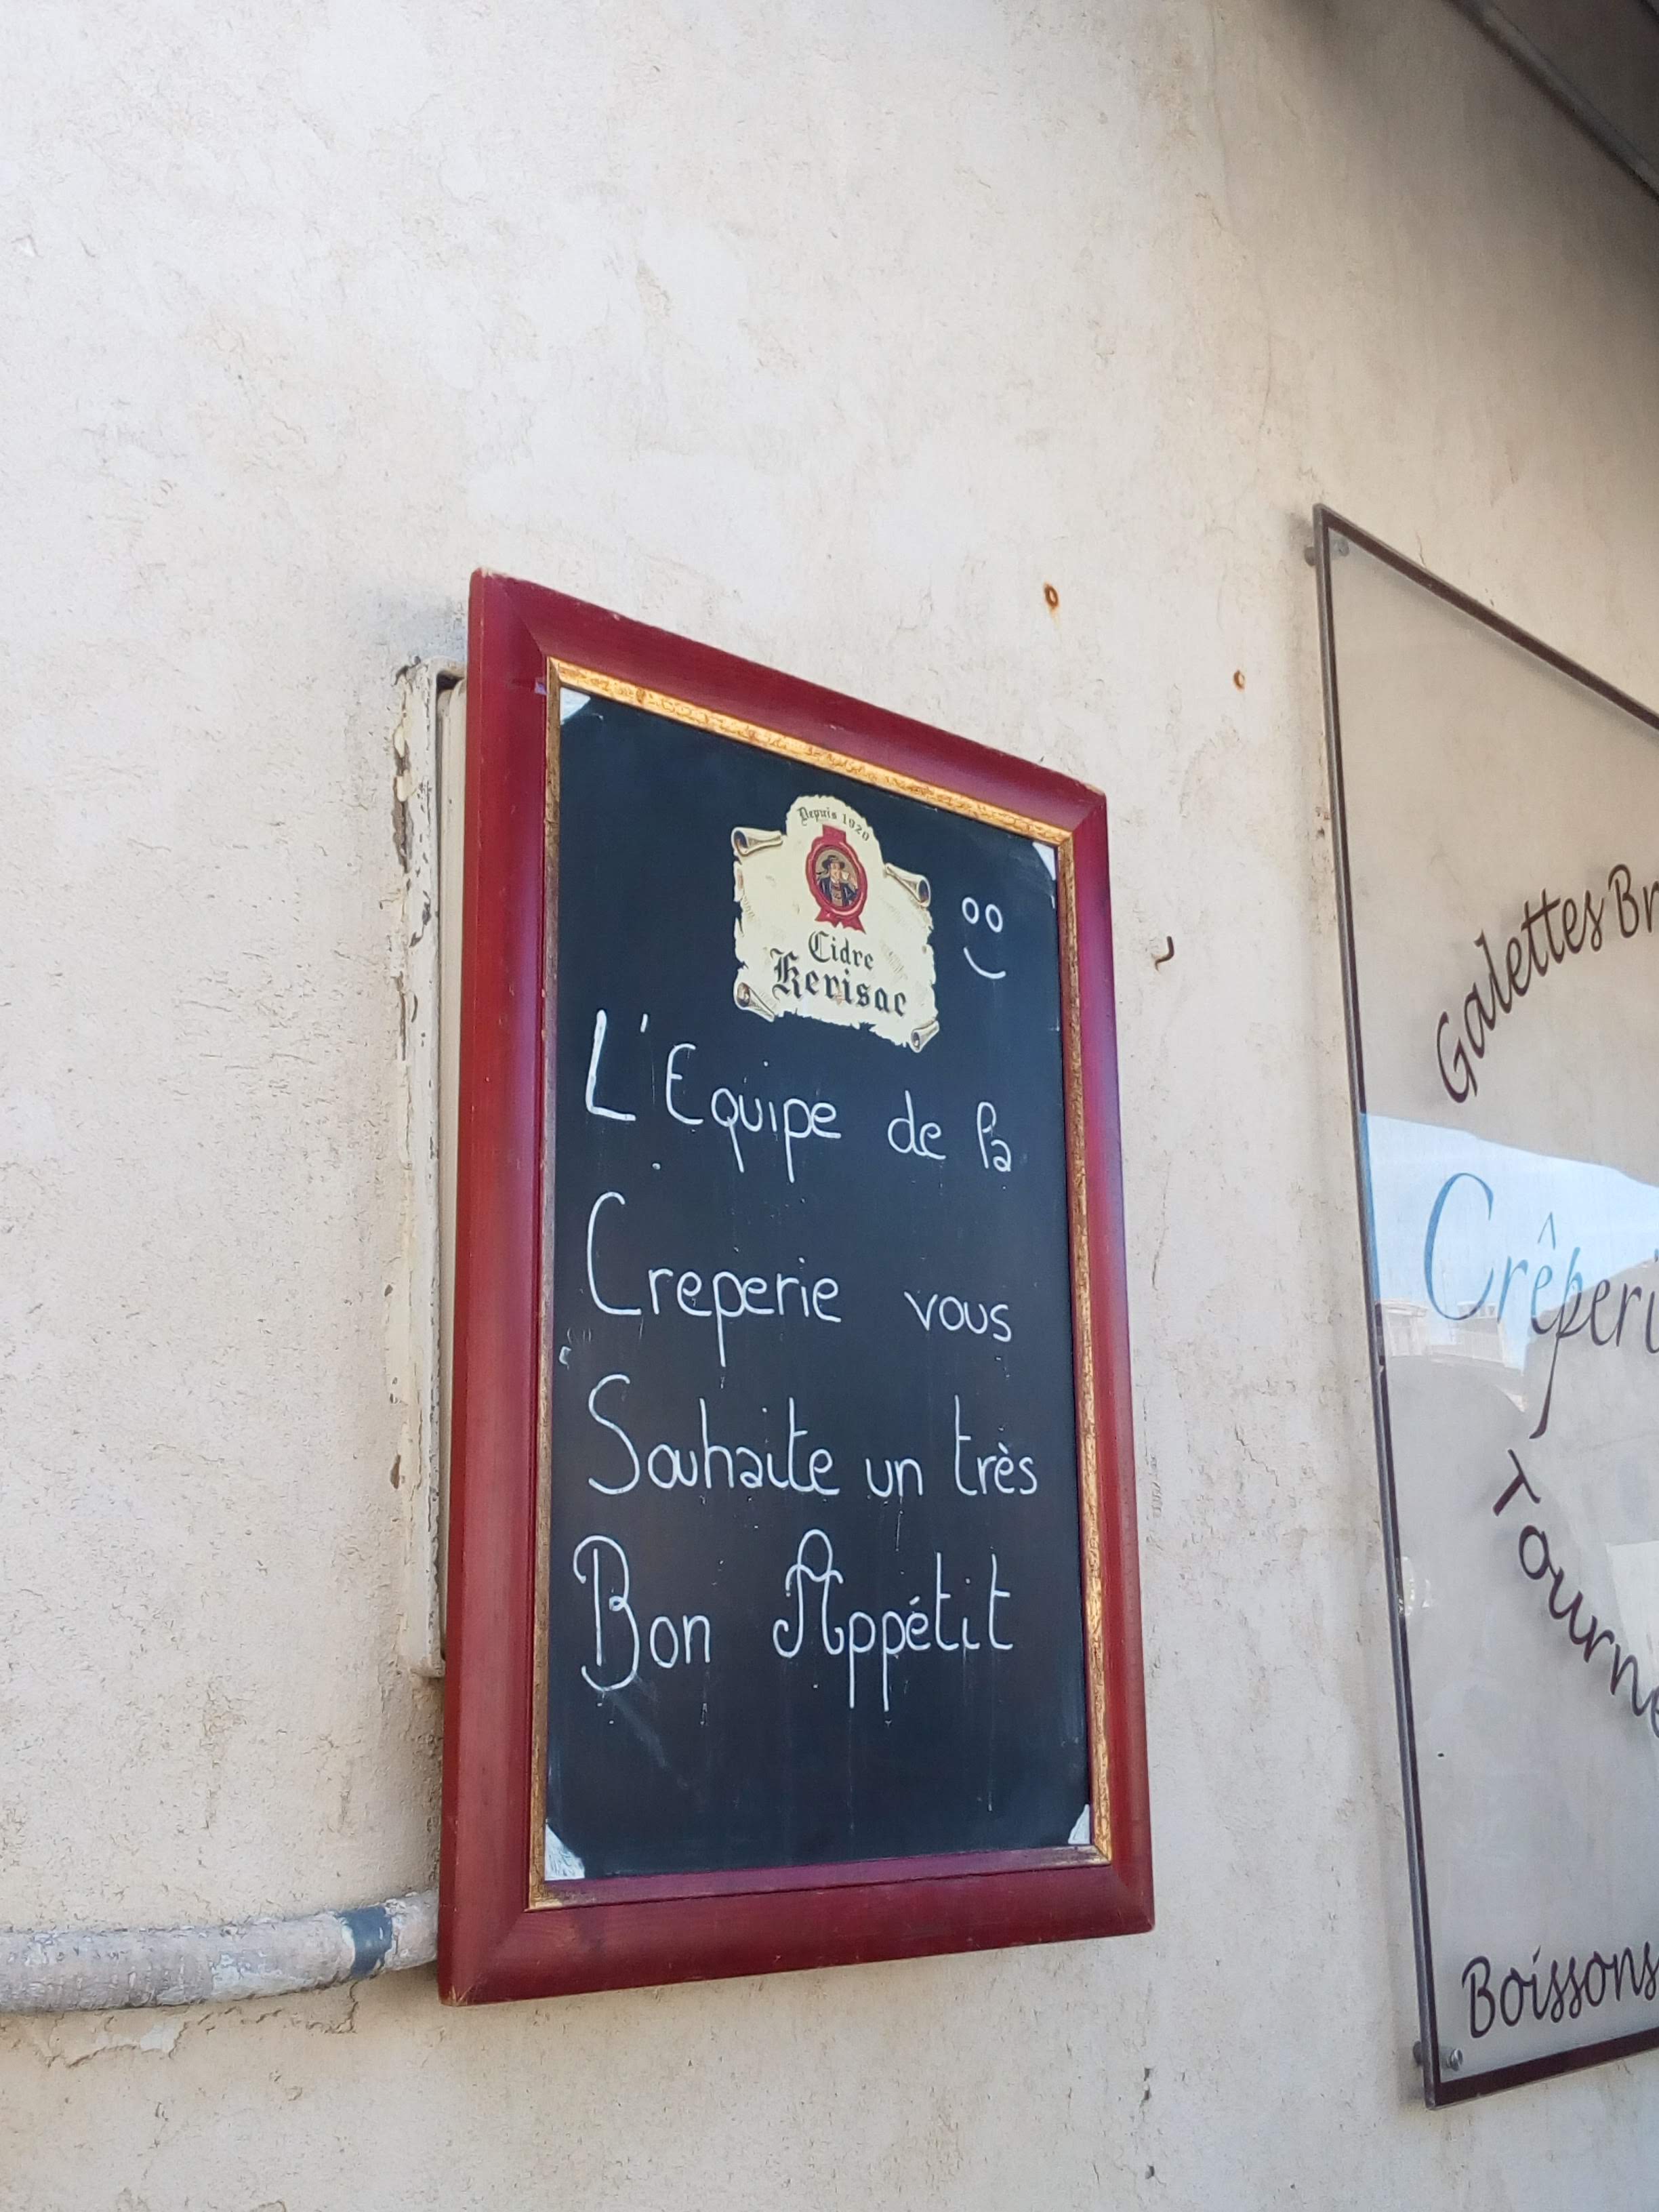 Depuis 1920
Cidre
Kerisac
L'Equipe de la
Creperie vous
Souhaite un très
Bon Appétit
Galettes
Crêperi
Tourne
Boissons